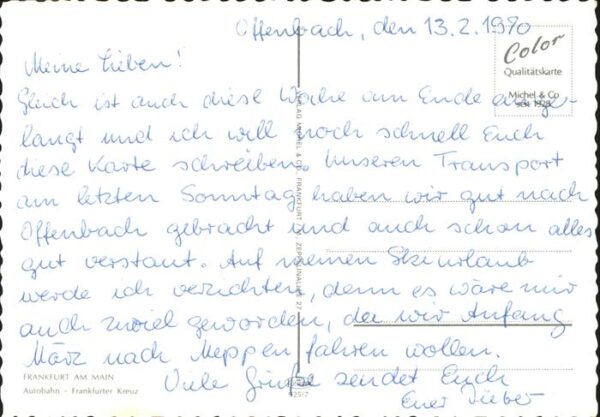 Offenbach, den 13.2.1970
Meine Lieben!
Gleich ist auch diese Woche am Ende ange-
langt und ich will noch schnell Euch
diese Karte schreiben. Unseren Transport
am letzten Sonntag haben wir gut nach
Offenbach gebracht und auch schon alles
gut verstaut. Auf meinen Skiurlaub
werde ich verzichten, denn es wäre mir
auch zuviel geworden, da wir Anfang
März nach Meppen fahren wollen.
Viele Grüße sendet Euch
Euer
Color
Qualitätskarte
Michel & Co
seit 1928
VERLAG MICHEL & CO., FRANKFURT ZEPPELINALLEE 27
FRANKFURT AM MAIN
Autobahn - Frankfurter Kreuz